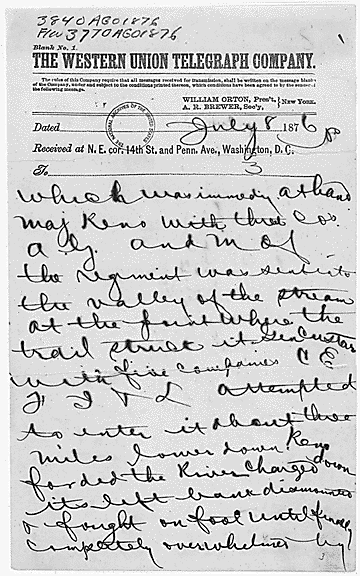 3840 AGO 1876
F/w 3770 AGO 1876
Blank No. 1.
THE WESTERN UNION TELEGRAPH COMPANY.
The rules of this Company require that all messages received for transmission, shall be written on the message blanks
of the Company, under and subject to the conditions printed thereon, which conditions have been agreed to by the sender of
the following message.
WILLIAM ORTON, Pres't, } NEW YORK.
A. R. BREWER, Sec'y,
Dated July 8 1876
Received at N. E. cor. 14th St. and Penn. Ave., Washington, D. C.
To 3
which was immedy at hand
Maj Reno with three Cos
A. G. and M of
the regiment was sent into
the valley of the stream
at the point where the
trail struck it Gen Custar
with five companies C E
F I & L attempted
to enter it about three
miles lower down. Reno
forded the River charged down
its left bank dismounted
& fought on foot until finally
completely overwhelmed by
3